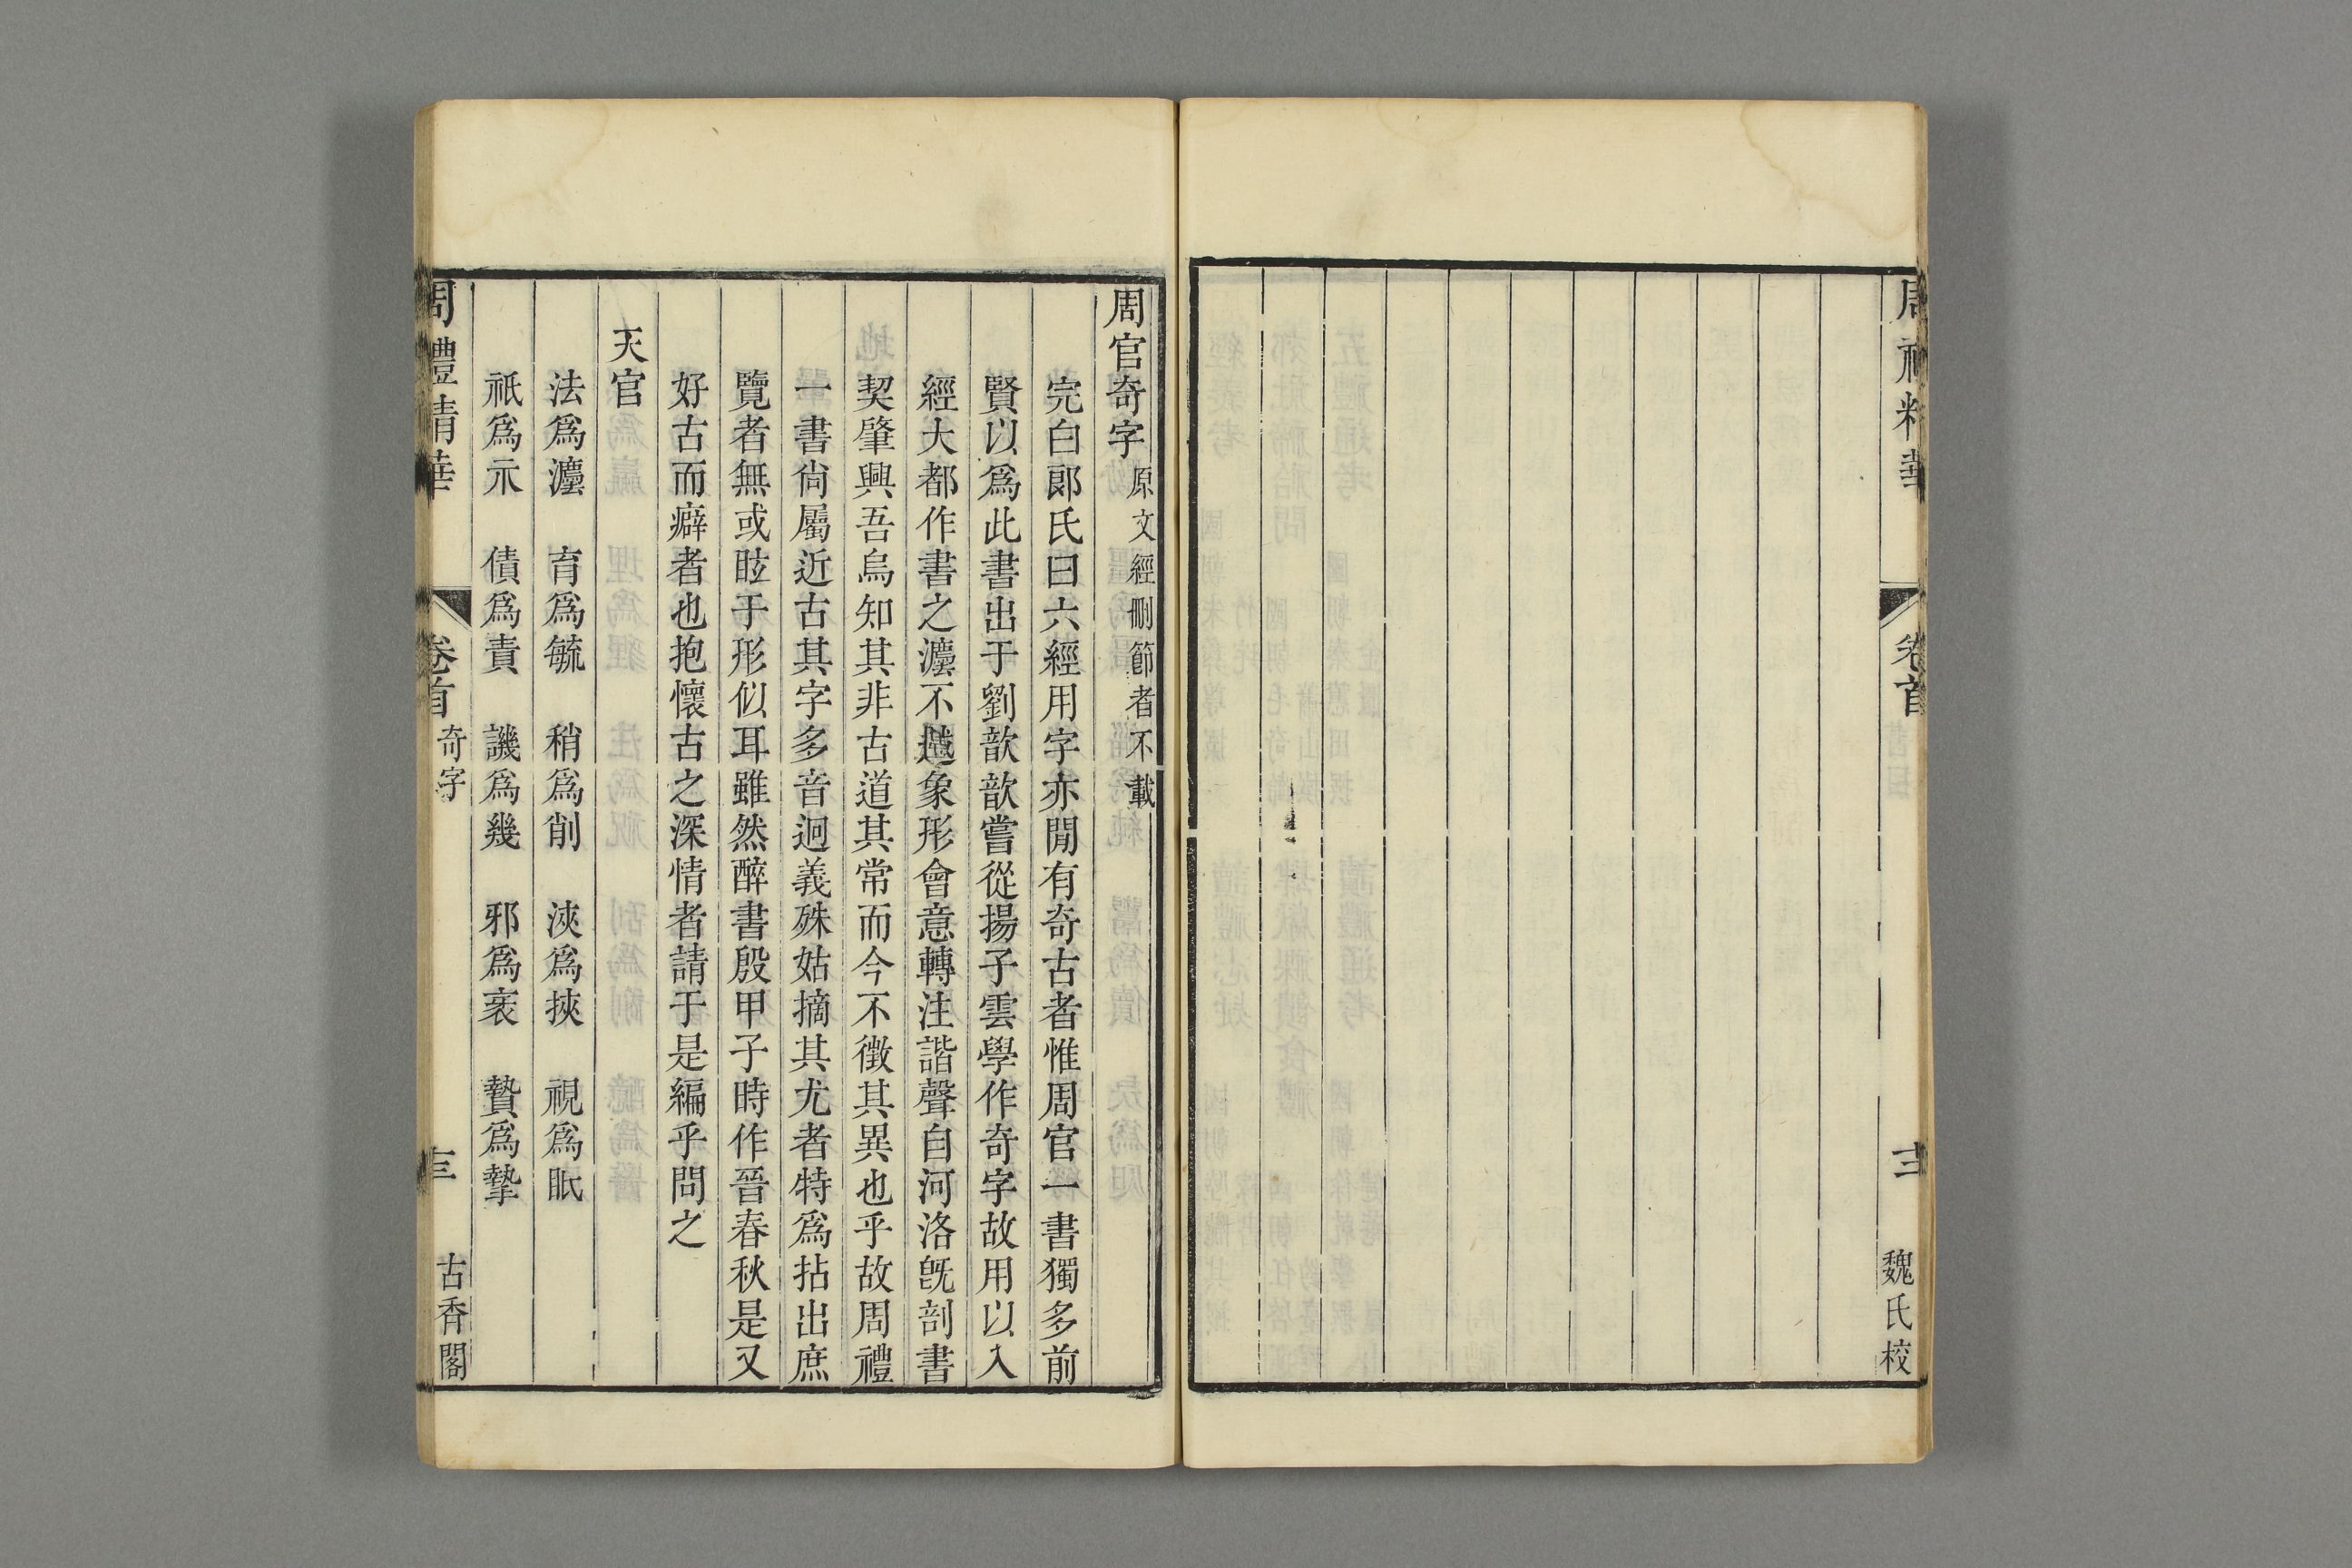 周禮精華
卷首
十二
魏氏校
周官奇字 原文經刪節者不載
完白郞氏曰六經用字亦閒有奇古者惟周官一書獨多前
賢以爲此書出于劉歆歆嘗從揚子雲學作奇字故用以入
經大都作書之灋不越象形會意轉注諧聲自河洛旣剖書
契肇興吾烏知其非古道其常而今不徵其異也乎故周禮
一書尙屬近古其字多音迥義殊姑摘其尤者特爲拈出庶
覽者無或眩于形似耳雖然醉書殷甲子時作晉春秋是又
好古而癖者也抱懷古之深情者請于是編乎問之
天官
法爲灋 育爲毓 稍爲削 浹爲挾 視爲眡
祇爲示 債爲責 譏爲幾 邪爲衺 贄爲摯
周禮精華
卷首 奇字
古香閣